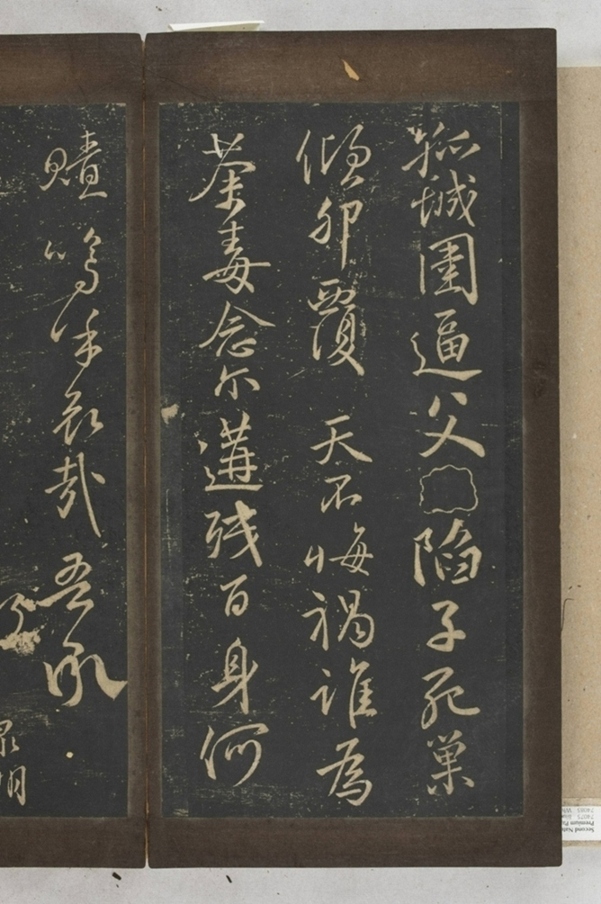 孤城圍逼父陷子死巢
傾卵覆天不悔禍誰為
荼毒念尓遘残百身何
贖嗚乎哀哉吾承
泉明